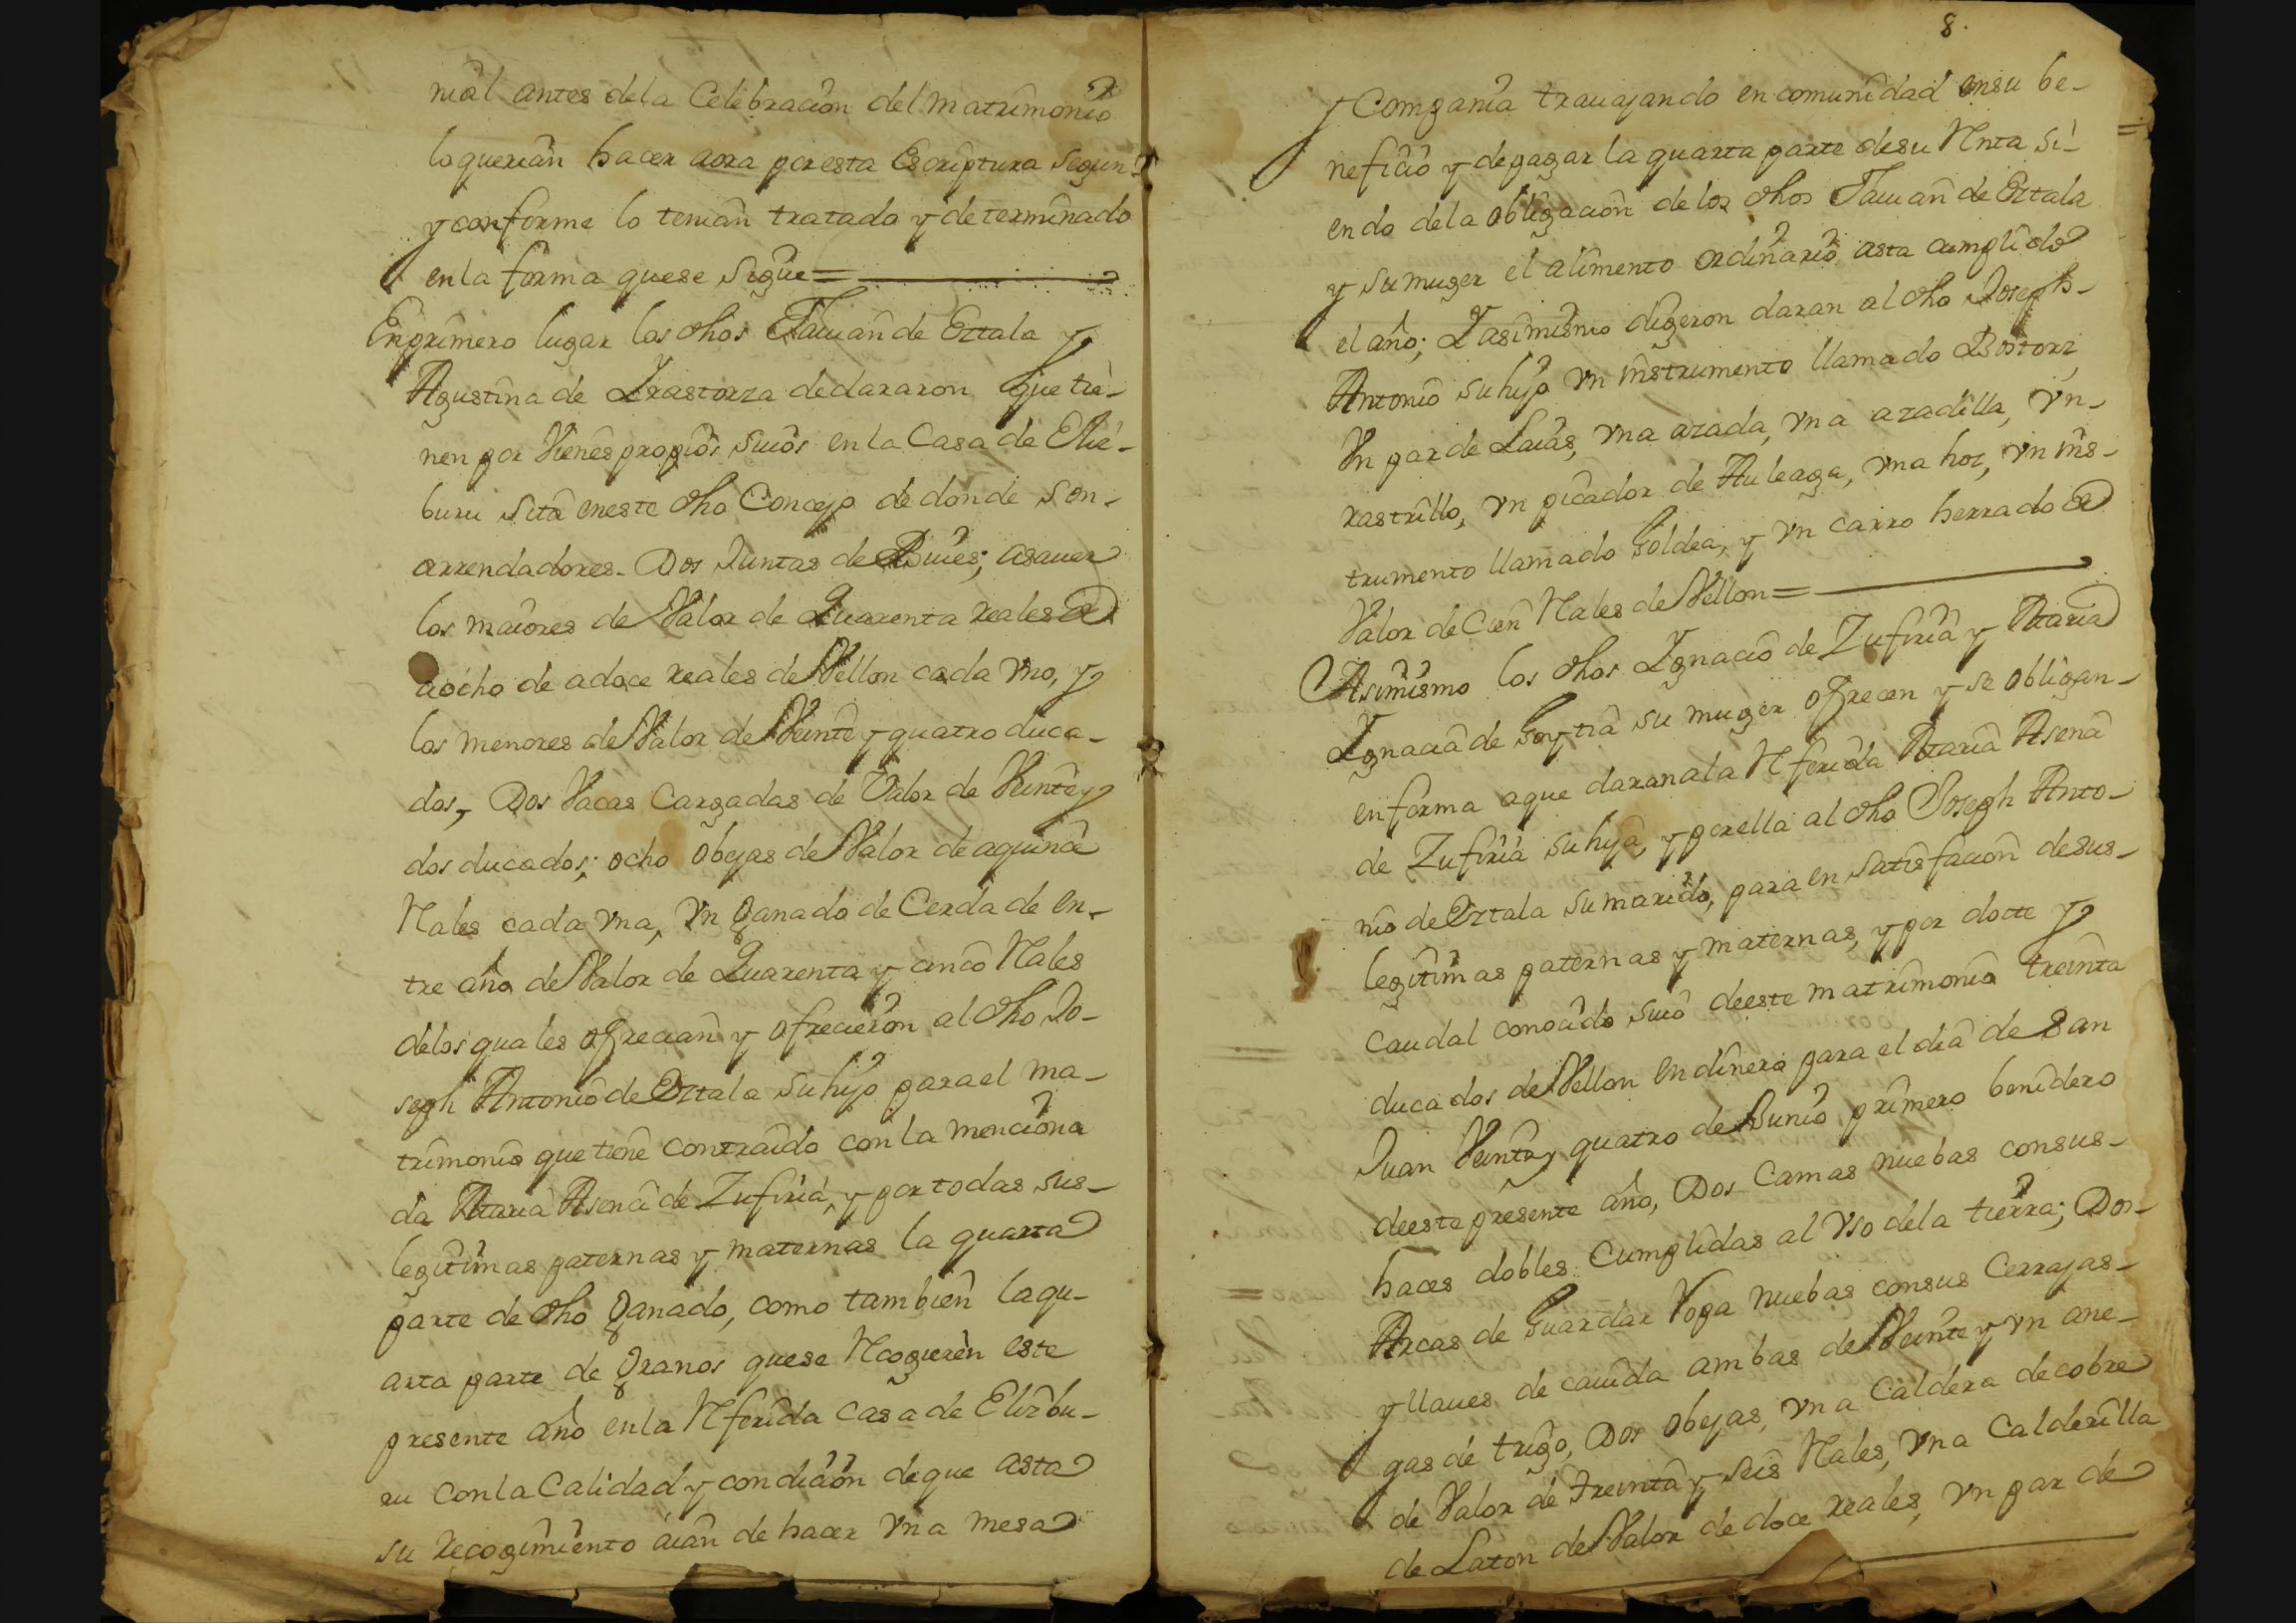 nial antes dela Celebracion del matrimonio
lo querian hacer aora por esta Escriptura segun
y conforme lo tenian tratado y determinado
en la forma que se sigue=
En primero lugar los dhos Fauian de Eztala y
Agustina de Yrastorza declararon que tie-
nen por Vienes propios suios en la Casa de Eliz-
buru sita en este dho Concejo de donde son-
arrendadores. Dos Juntas de Bueies; asauer
los maiores de Valor de Quarenta reales de
aocho de adoce reales de Vellon cada vno, y
los menores de Valor de Veinte y quatro duca-
dos, Dos Vacas Cargadas de Valor de Veinte y
dos ducados; ocho obejas de Valor de aquince
Rales cada vna, Vn ganado de Cerda de en-
tre año de Valor de Quarenta y cinco Rales
delos quales ofrecian y ofrecieron al dho Jo-
seph Antonio de Eztala su hijo para el ma-
trimonio que tiene contraido con la menciona
da Maria Asena de Zufiria, y por todas sus-
legitimas paternas y maternas la quarta
parte de dho ganado, como tambien la qu-
arta parte de granos que se Rcogieren este
presente año en la Rferida casa de Elizbu-
ru con la Calidad y condicion de que asta
su recogimiento aian de hacer vna mesa
8.
y Compania trauajando en comunidad en su be-
neficio y de pagar la quarta parte de su Rnta si-
endo dela obligacion de los dhos Fauian de Eztala
y su muger el alimento ordinario asta cumplido
el año; Y asimismo digeron daran al dho Joseph-
Antonio su hijo vn instrumento llamado Bostorz,
Vn par de Laias, vna azada, vna azadilla, vn-
rastrillo, vn picador de Auleaga, vna hoz, vn ins-
trumento llamado Goldea, y vn carro herrado de
Valor de Cien Rales de Vellon=
Asimismo los dhos Ygnacio de Zufiria y Maria
Ygnacia de Goytia su muger ofrecen y se obligan-
en forma a que daran a la Rferida Maria Asena
de Zufiria su hija, y por ella al dho Joseph Anto-
nio de Eztala su marido, para en satisfacion de sus-
legitimas paternas y maternas, y por dotte y
caudal conocido suio de este matrimonio treinta
ducados de Vellon en dinero para el dia de San
Juan Veinte y quatro de Junio primero benidero
de este presente año, Dos Camas nuebas con sus-
haces dobles Cumplidas al Vso dela tierra; Dos-
Arcas de Guardar Ropa nuebas con sus Cerrajas-
y llaues de cauida ambas de Veinte y vn ane-
gas de trigo, Dos obejas, vna Caldera de cobre
de Valor de Treinta y seis Rales, vna Calderilla
de Laton de Valor de doce reales, vn par de